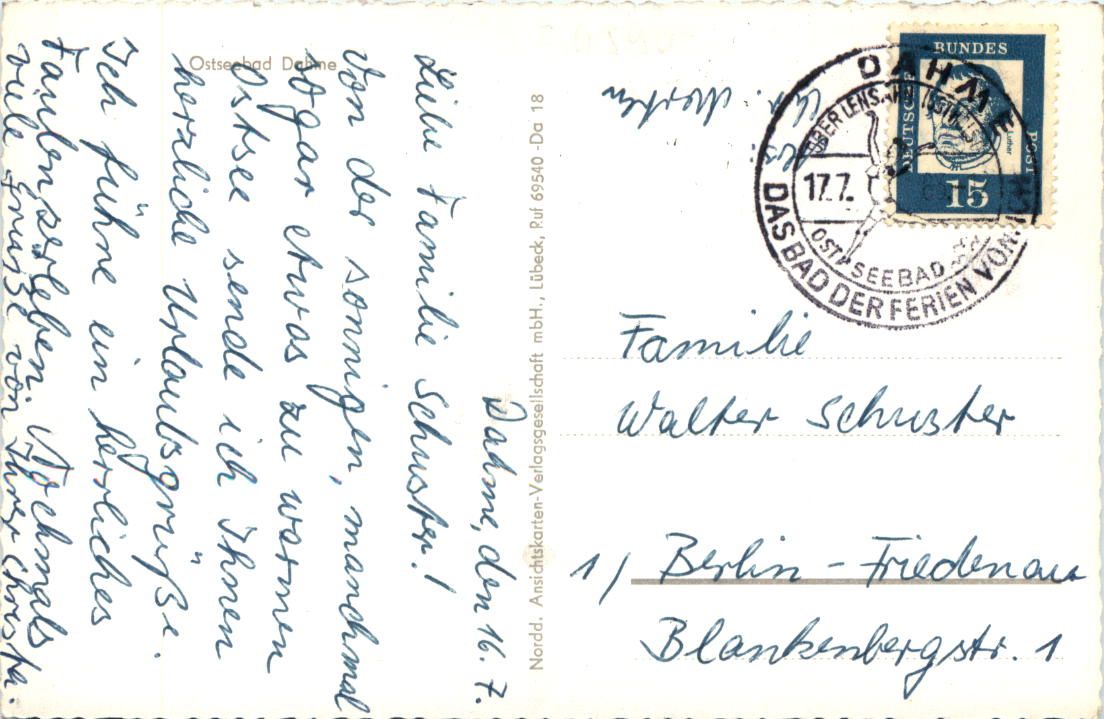 Ostseebad Dahme
Dahme, den 16. 7.
Liebe Familie Schuster!
Von der sonnigen, manchmal
sogar etwas zu warmen
Ostsee sende ich Ihnen
herzliche Urlaubsgrüße.
Ich führe ein herrliches
Faulenzerleben. Nochmals
viele Grüße von Ihrer Christa.
Nordd. Ansichtskarten-Verlagsgesellschaft mbH., Lübeck, Ruf 69540 -Da 18
DEUTSCHE
BUNDES
POST
Luther
15
DAHME
ÜBER LENSAHN (HOLST)
17.7.
OSTSEEBAD
DAS BAD DER FERIEN VON
Familie
Walter Schuster
1/ Berlin - Friedenau
Blankenbergstr. 1